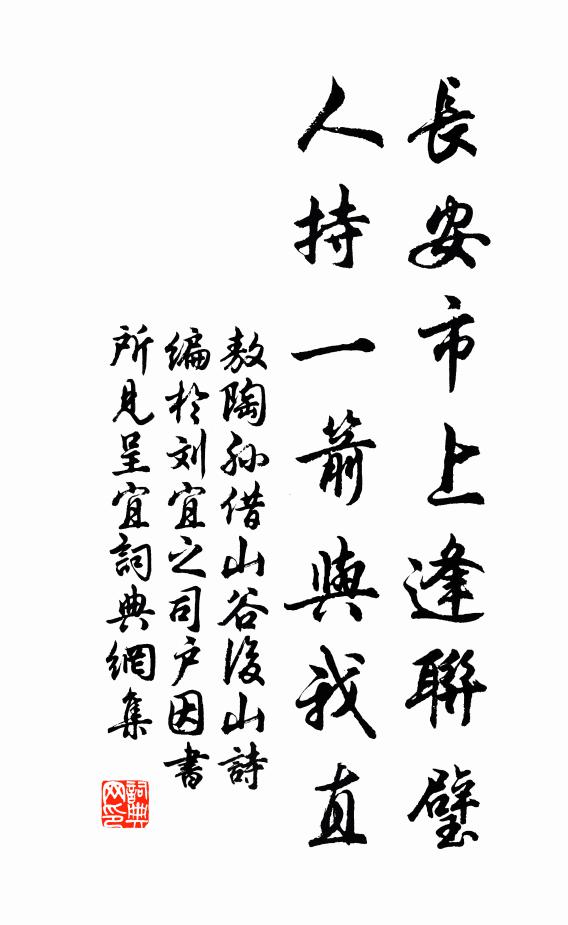 長安市上逢聯璧
人持一箭與我直
敖陶孙借山谷後山詩
編於刘宜之司户因書
所見呈宜詞典網集
詞典
网印